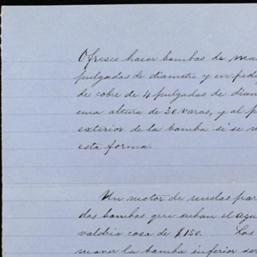 Ofresco hacer bombas de
pulgadas de diametro y un
de cobre de 4 pulgadas de
una altura de 20 varas, y al
exterior de la bomba si se
esta forma.
Un motor de mulas para
dos bombas que suban el
valdria cosa de $150. Los
la bomba inferior